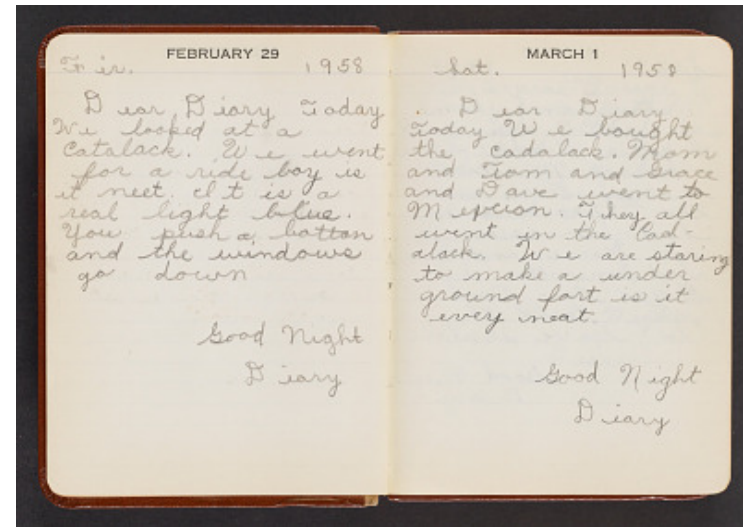 FEBRUARY 29
Fir. 1958
Dear Diary Today
We looked at a
Catalack. We went
for a ride boy is
it neet. It is a
real light blue.
You push a botton
and the windows
go down
Good Night
Diary
MARCH 1
Sat. 1958
Dear Diary
Today We bought
the cadalack. Mom
and Tom and Grace
and Dave went to
They all
went in the Cad-
alack. We are staring
to make a under
ground fort is it
evey neat.
Good Night
Diary